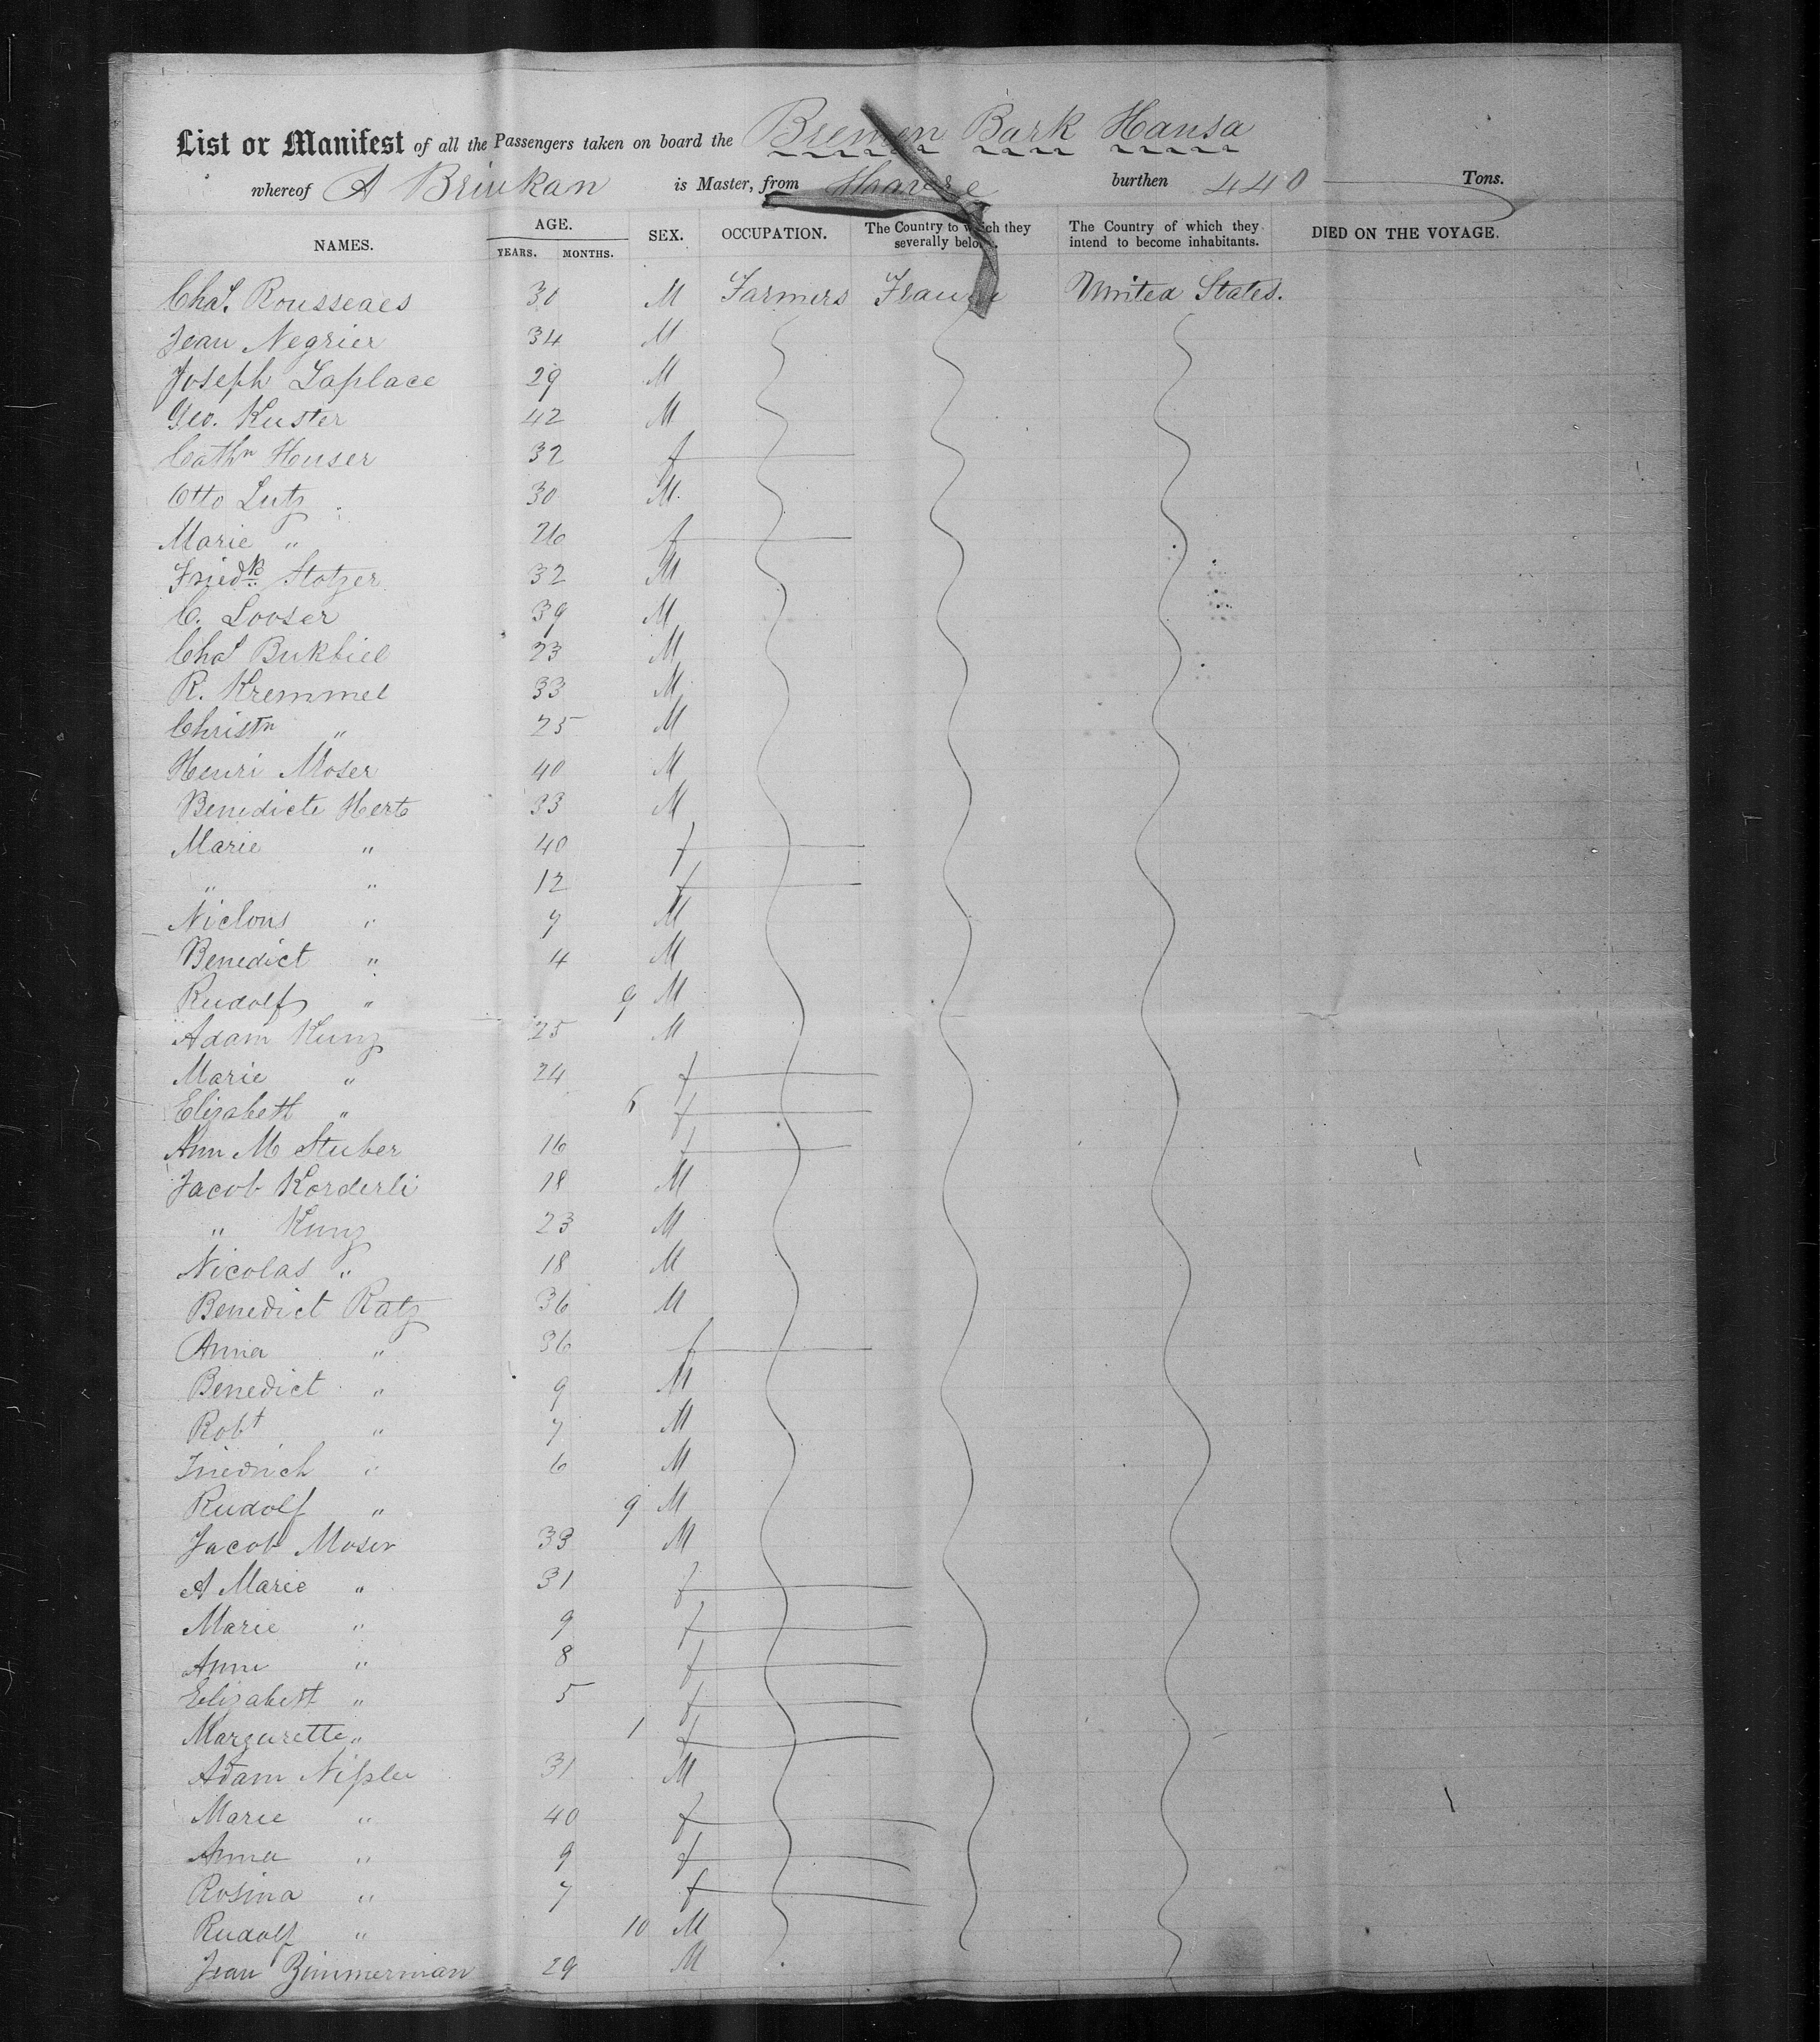 List or Manifest of all the Passengers taken on board the Bremen Bark Hansa
whereof A Brinkan is Master, from Havre burthen 440 Tons.
NAMES. AGE. YEARS. MONTHS. SEX. OCCUPATION. The Country to which they severally belong. The Country of which they intend to become inhabitants. DIED ON THE VOYAGE.
Chas. Rousseaes 30 M Farmers France United States.
Jean Negrier 34 M
Joseph Laplace 29 M
Geo. Kuster 42 M
Cathn Heuser 32 f
Otto Lutz 30 M
Marie " 26 f
Friedk Stotzer 32 M
C. Looser 39 M
Chas Bukbiel 23 M
R. Kremmel 33 M
Christn " 25 M
Henri Moser 40 M
Benedicte Hert 33 M
Marie " 40 f
" " 12 f
Niclous " 7 M
Benedict " 4 M
Rudolf " 9 M
Adam Kunz 25 M
Marie " 24 f
Elizabeth " 6 f
Ann M Stuber 16 f
Jacob Korderli 18 M
" Kunz 23 M
Nicolas " 18 M
Benedict Ratz 36 M
Anna " 36 f
Benedict " 9 M
Robt " 7 M
Friedrich " 6 M
Rudolf " 9 M
Jacob Moser 33 M
A Marie " 31 f
Marie " 9 f
Anna " 8 f
Elizabeth " 5 f
Margurette " 1 f
Adam Nißler 31 M
Marie " 40 f
Anna " 9 f
Rosina " 7 f
Rudolf " 10 M
Jean Zimmerman 29 M